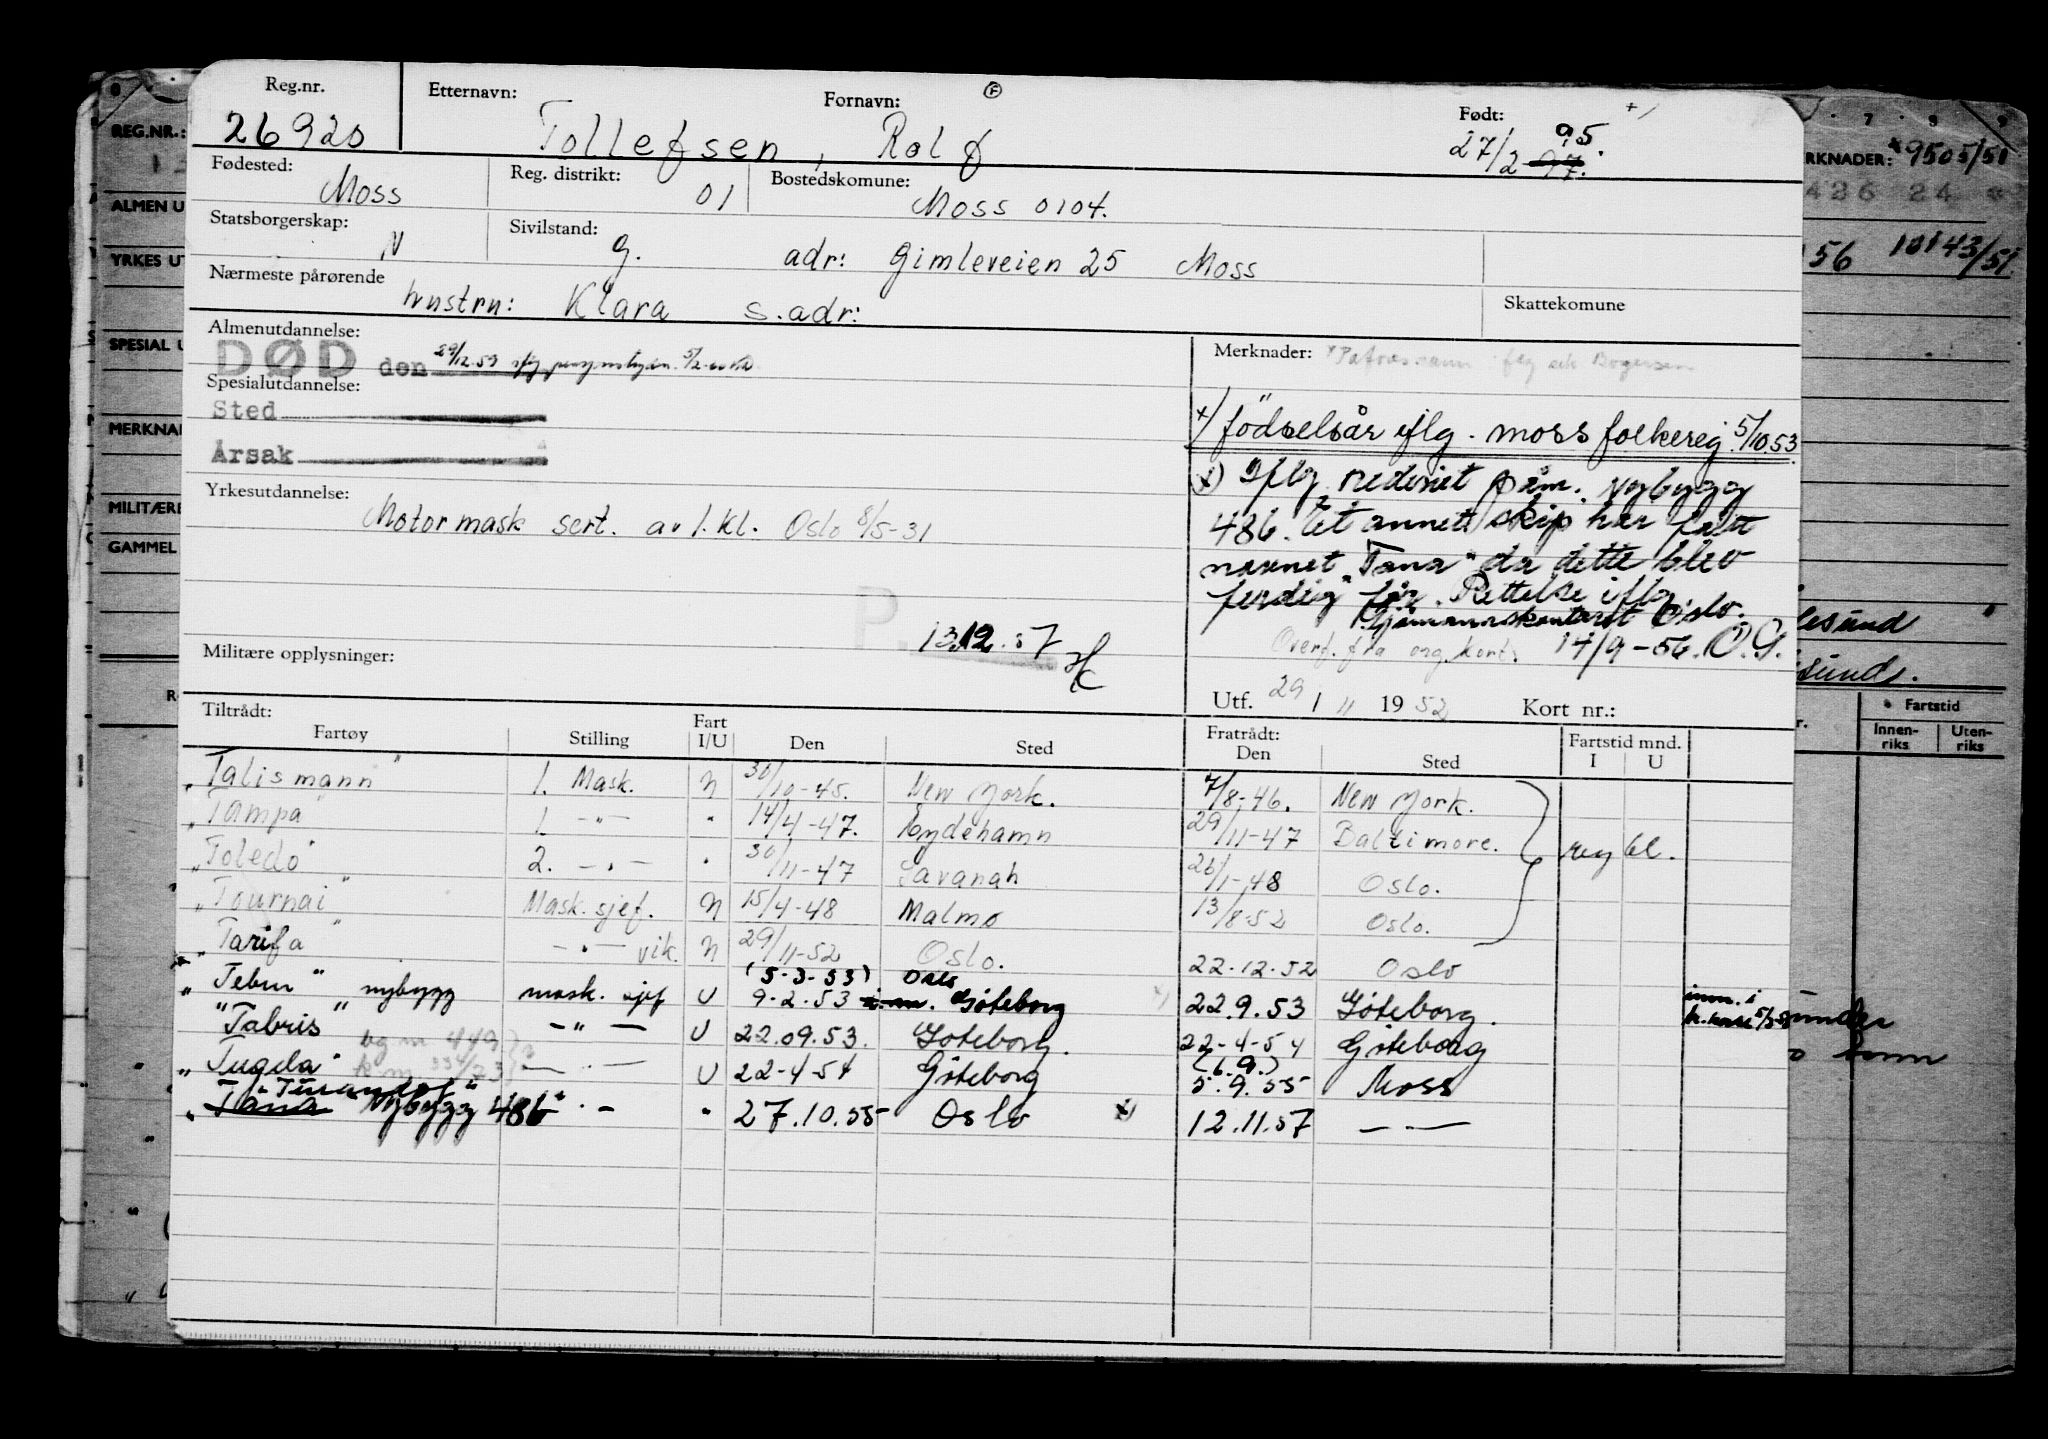 Reg.nr. Etternavn: Fornavn: Født:
26920 Tollefsen, Rolf 27/2 95. 97.
Fødested: Moss Reg. distrikt: 01 Bostedskomune: Moss 0104.
Statsborgerskap: N Sivilstand: g. adr: Gimleveien 25 Moss
Nærmeste pårørende hustru: Klara s.adr: Skattekomune
Almenutdannelse: Merknader:
DØD den 29/12.59
Spesialutdannelse:
Sted
Årsak
+) födselsår iflg. moss folkereg. 5/10.53
x) Iflg. rederiet
486. Et annet skip har fått
navnet "Tana" da dette blev
ferdig før. Rettelse iflg.
Sjömannskontoret Oslo.
Overf. fra org. kort. 14/9-56. O.G.
Yrkesutdannelse:
Motormask sert. av 1. kl. Oslo 8/5-31
P. 13.12.57
Militære opplysninger:
Utf. 29 / 11 1952 Kort nr.:
Tiltrådt: Fratrådt: Fartstid mnd.
Fartøy Stilling Fart I/U Den Sted Den Sted I U
"Talismann" 1. Mask. N 30/10-45. New York. 7/8-46. New York.
"Tampa" 1. -"- " 14/4-47. Eydehamn 29/11-47 Baltimore.
"Toledo" 2. -"- " 30/11-47 Savanah 26/1-48 Oslo.
"Tournai" Mask. sjef. N 15/4-48 Malmo 13/8-52 Oslo.
"Tarifa" -"- vik. N 29/11-52 Oslo. 22.12.52 Oslo
(5.3.53) Oslo
nybygg mask. sjef U 9.2.53 Göteborg 22.9.53 Göteborg.
"Tabris" -"- U 22.09.53. Göteborg. 22-4-54 Göteborg
"Tugela" U 22-4-54 Göteborg (6.9.) 5.9.55 Moss
"Turandot"
"Tana" Nybygg 486" -"- " 27.10.55 Oslo x) 12.11.57 -"-
REG.NR.:
ALMEN U
YRKES UT
SPESIAL U
MERKNA
MILITÆRE
GAMMEL
RKNADER: 9505/51
426 24
156 10143/51
Fartstid
Innen-riks Uten-riks